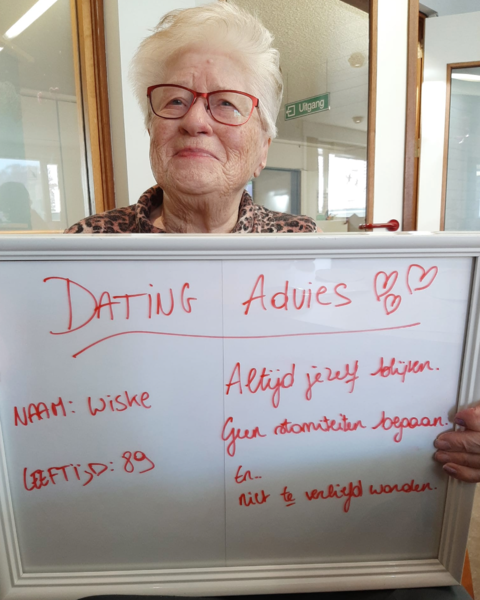 Uitgang
DATING Advies
NAAM: Wiske
LEEFTIJD: 89
Altijd jezelf blijven.
Geen stomiteiten begaan.
En..
niet te verliefd worden.